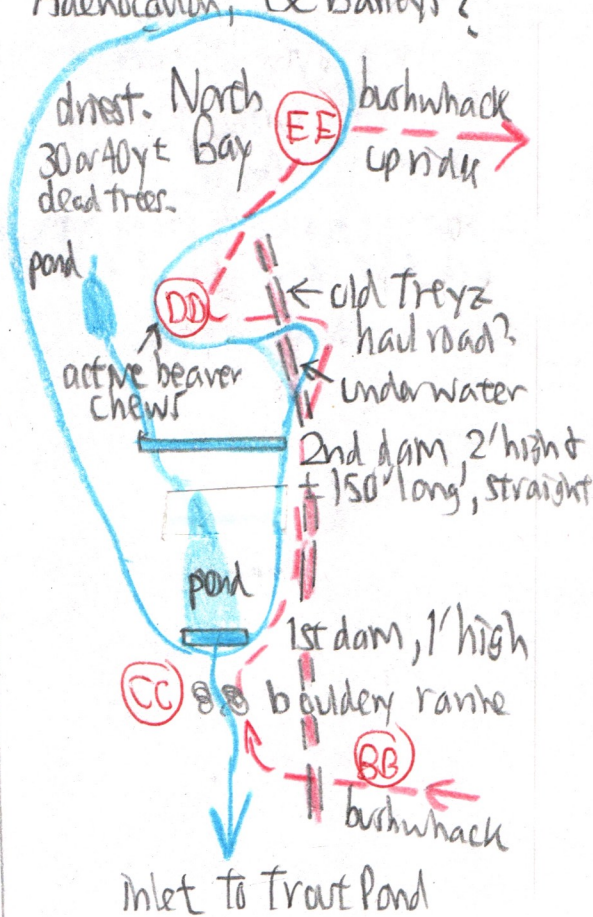 driest. North
30 or 40 yt Bay
dead trees.
EE
bushwhack
up
pond
DD
← old Treyz
haul road?
active beaver
chews
underwater
2nd dam, 2' hight
± 150' long, straight
pond
1st dam, 1' high
CC
bouldery
BB
bushwhack
inlet to Trout Pond